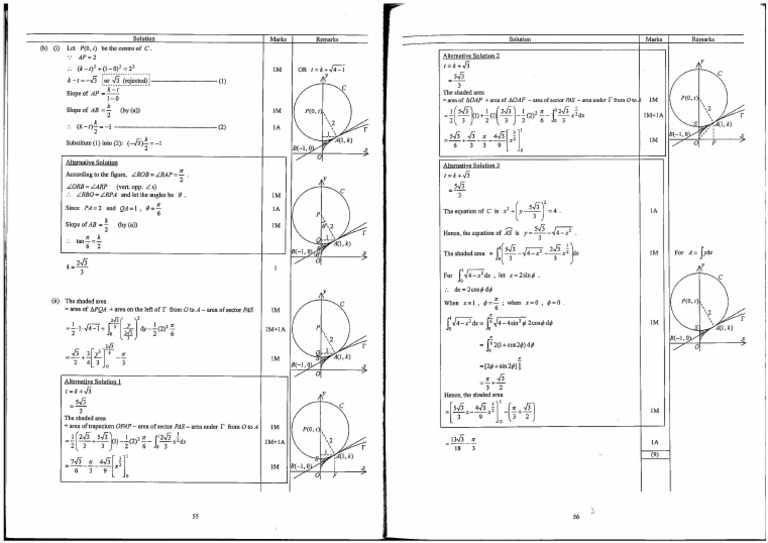 Solution Marks Remarks
(b) (i) Let P(0, t) be the centre of C.
∵ AP = 2
∴ (k − t)² + (1 − 0)² = 2² 1M OR t = k + √(4−1)
k − t = −√3 or √3 (rejected) (1)
Slope of AP = (k − t)/(1 − 0)
Slope of AB = k/2 (by (a)) 1M
∴ (k − t)k/2 = −1 (2) 1A
Substitute (1) into (2): (−√3)k/2 = −1
Alternative Solution
According to the figure, ∠ROB = ∠RAP = π/2.
∠ORB = ∠ARP (vert. opp. ∠s)
∴ ∠RBO = ∠RPA and let the angles be θ. 1M
Since PA = 2 and QA = 1, θ = π/6 1A
Slope of AB = k/2 (by (a)) 1M
∴ tan π/6 = k/2
k = 2√3/3 1
(ii) The shaded area
= area of ΔPQA + area on the left of Γ from O to A − area of sector PAS 1M
1M+1A
1M
Alternative Solution 1
t = k + √3
= 5√3/3
The shaded area
= area of trapezium OPAP − area of sector PAS − area under Γ from O to A 1M
1M+1A
= 7√3/6 − π/3 − 4√3/9 [x^(3/2)]₀¹ 1M
55
Solution Marks Remarks
Alternative Solution 2
t = k + √3
= 5√3/3
The shaded area
= area of ΔOAP + area of ΔOAF − area of sector PAS − area under Γ from O to A 1M
= 1/2 (5√3/3)(1) + 1/2 (1)(2√3/3) − 1/2 (2)² π/6 − ∫₀¹ 2√3/3 x^(1/2) dx 1M+1A
= 5√3/6 + √3/3 − π/3 − 4√3/9 [x^(3/2)]₀¹ 1M
Alternative Solution 3
t = k + √3
= 5√3/3
The equation of C is x² + (y − 5√3/3)² = 4. 1A
Hence, the equation of AS is y = 5√3/3 − √(4 − x²).
The shaded area = ∫₀¹ (5√3/3 − √(4 − x²) − 2√3/3 x^(1/2)) dx 1M For A = ∫ y dx
For ∫₀¹ √(4 − x²) dx, let x = 2sin φ.
∴ dx = 2cos φ dφ
When x = 1, φ = π/6; when x = 0, φ = 0.
∫₀¹ √(4 − x²) dx = ∫₀^(π/6) √(4 − 4sin² φ) 2cos φ dφ 1M
= ∫₀^(π/6) 2(1 + cos 2φ) dφ
= [2φ + sin 2φ]₀^(π/6)
= π/3 + √3/2
Hence, the shaded area
= [5√3/3 x − 4√3/9 x^(3/2)]₀¹ − (π/3 + √3/2) 1M
= 13√3/18 − π/3 1A
(9)
56